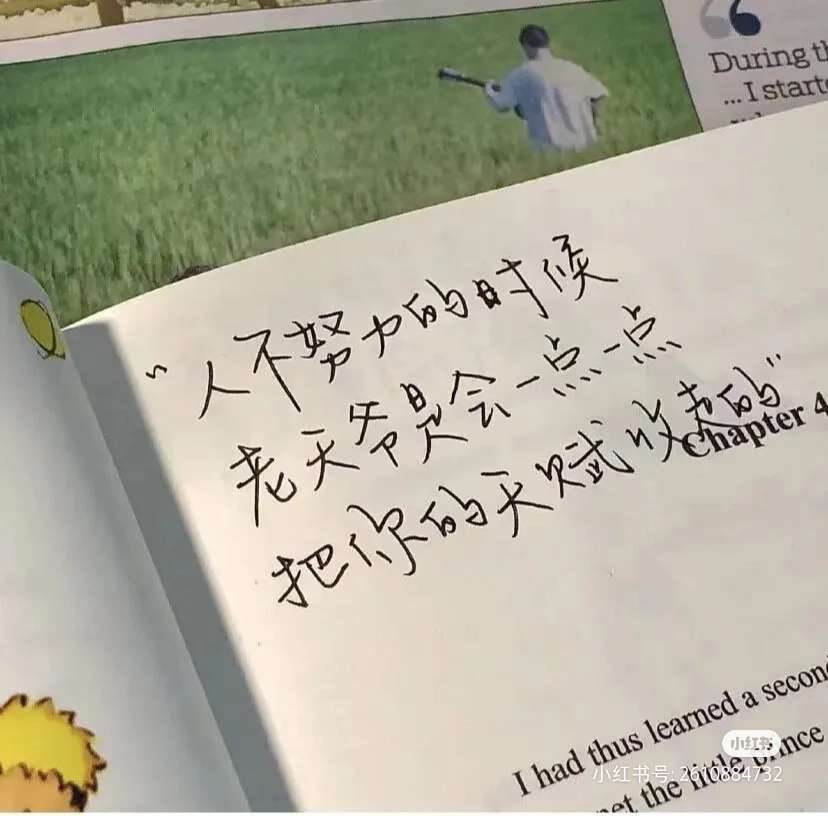 During th
... I starte
"人不努力的时候
老天爷是会一点一点
把你的天赋收走的"
Chapter 4
I had thus learned a second
net the little prince
小红书
小红书号: 2610884732